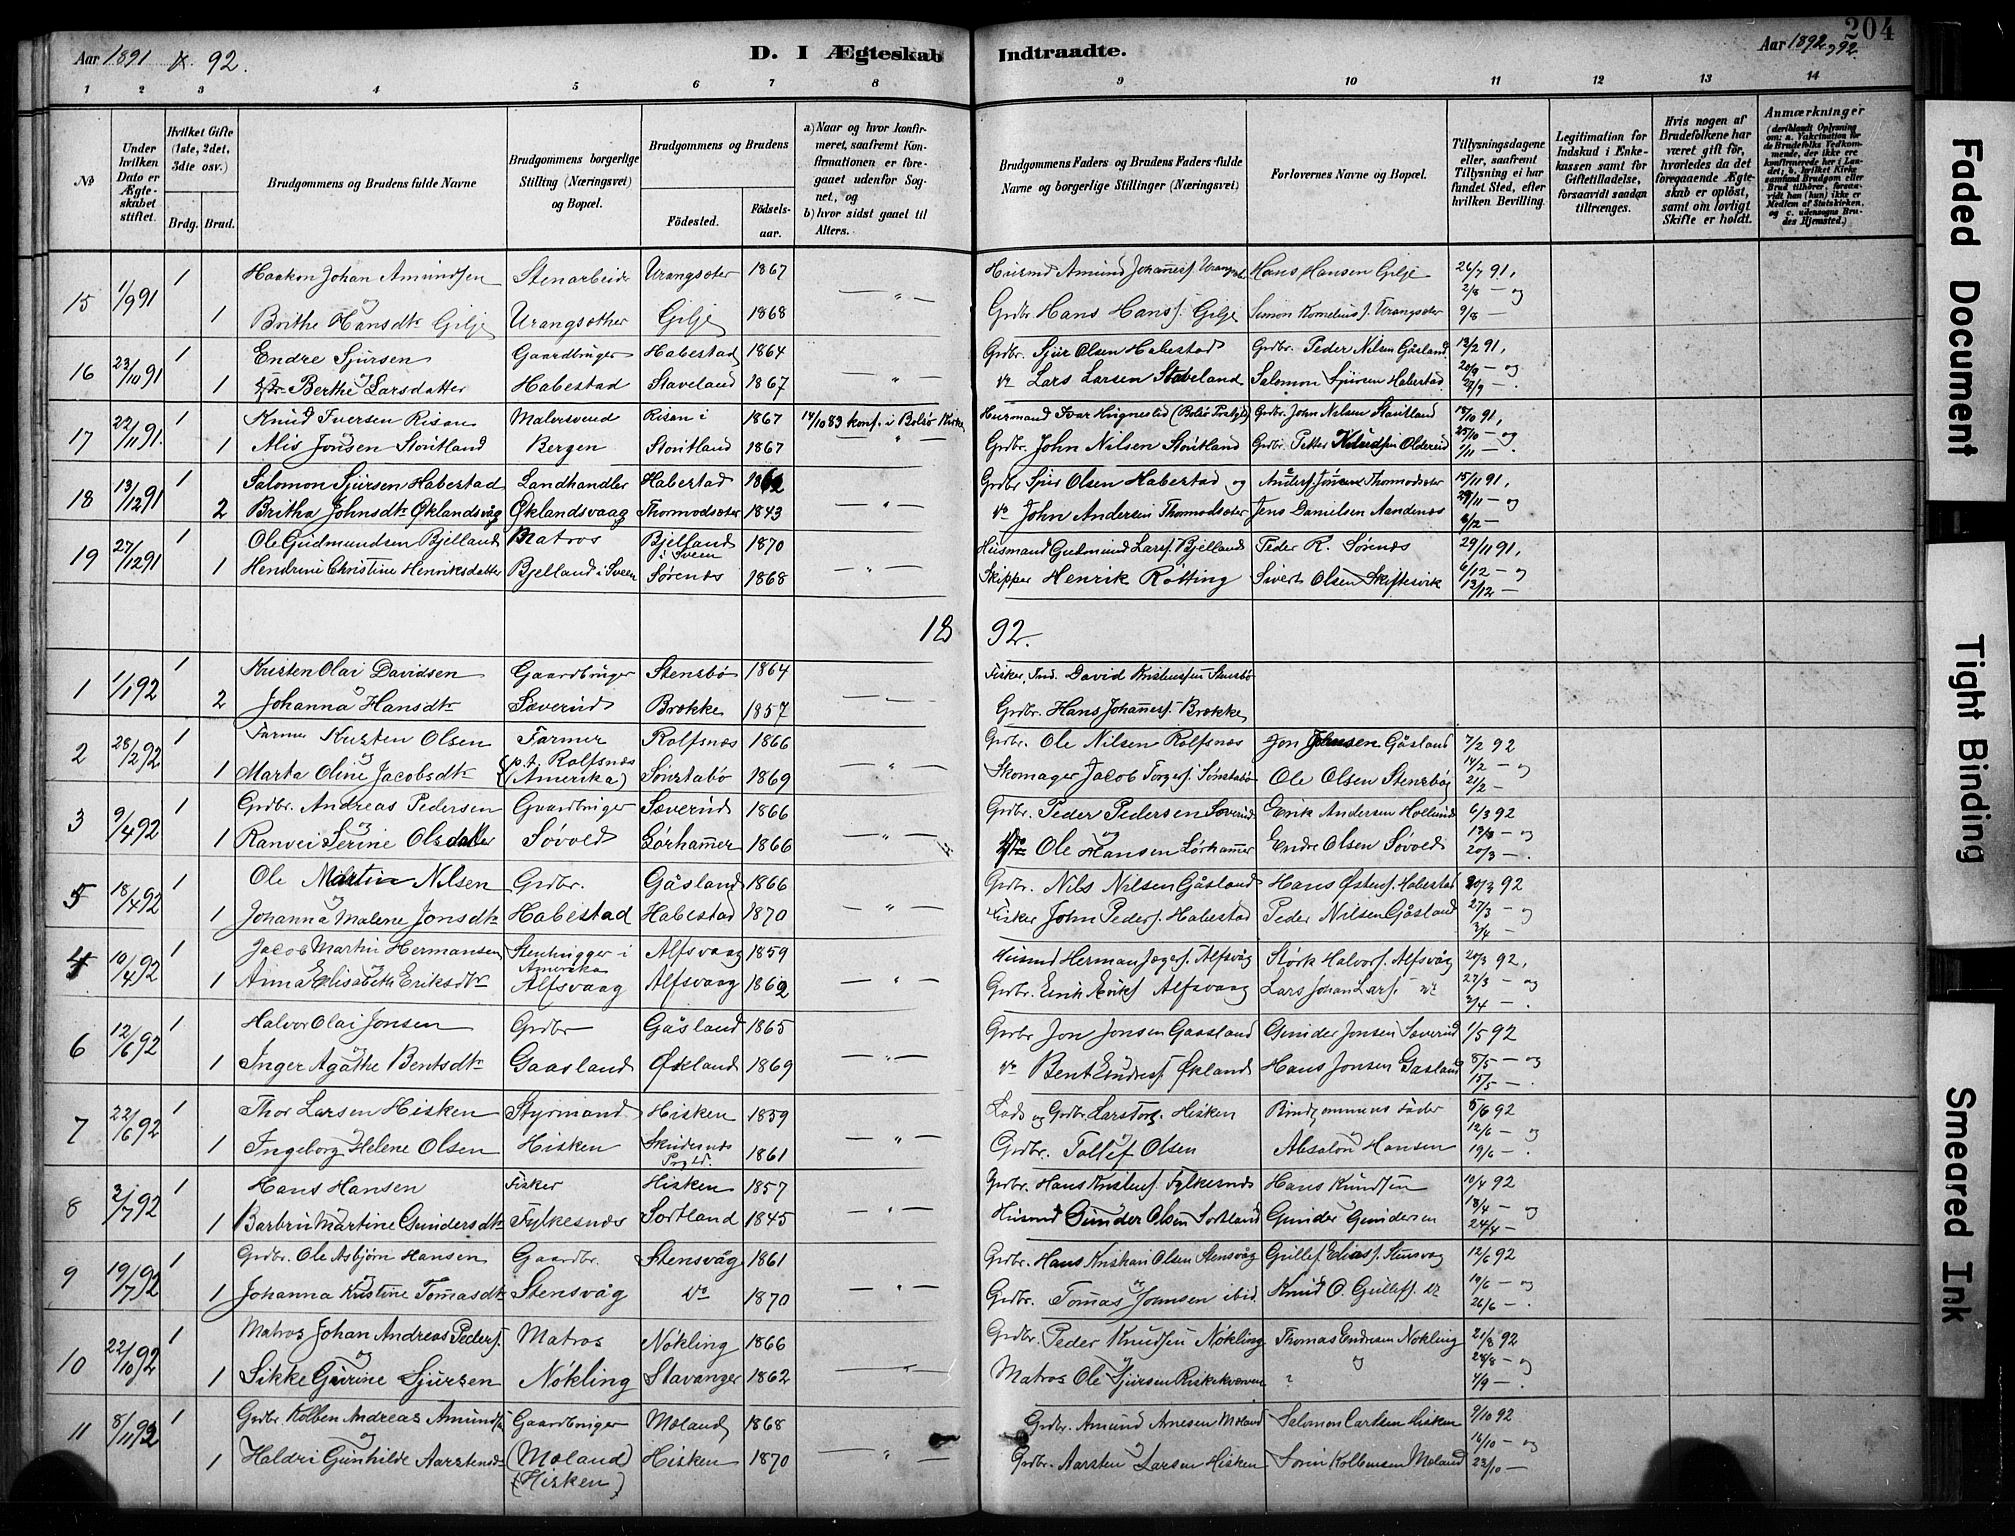 204
Aar 1891 & 92.
D. I Ægteskab Indtraadte.
Aar 1892 92.
1 2 3 4 5 6 7 8 9 10 11 12 13 14
№
Under hvilken Dato er Ægteskabet stiftet.
Hvilket Gifte (1ste, 2det, 3die osv.)
Brdg. Brud.
Brudgommens og Brudens fulde Navne
Brudgommens borgerlige Stilling (Næringsvei) og Bopæl.
Brudgommens og Brudens
Födested.
Födselsaar.
a) Naar og hvor konfirmeret, saafremt Konfirmationen er foregaaet udenfor Sognet, og
b) hvor sidst gaaet til Alters.
Brudgommens Faders og Brudens Faders fulde Navne og borgerlige Stillinger (Næringsvei)
Forlovernes Navne og Bopæl.
Tillysningsdagene eller, saafremt Tillysning ei har fundet Sted, efter hvilken Bevilling.
Legitimation for Indskud i Enkekassen samt for Giftetilladelse, forsaavidt saadan tiltrænges.
Hvis nogen af Brudefolkene har været gift för, hvorledes da det foregaaende Ægteskab er oplöst, samt om lovligt Skifte er holdt.
Anmærkninger
15 1/9 91 1 Haakon Johan Amundsen Stenarbeider Urangsæter 1867 Husmd Amund Johannesf. Hans Hansen Gilje 26/7 91,
2/8 — og
1 Brithe Hansdtr Gilje Urangsæther Gilje 1868 Grdbr. Hans Hansf. Gilje Simon Kornelius f. Urangsæter 9/8 —
16 23/10 91 1 Endre Sjursen Gaardbruger Habestad 1864 Grdbr. Sjur Olsen Habestad Grdbr. Peder Nilsen Gåsland 13/2 91,
20/9 — og
1 Berthe Larsdatter Habestad Staveland 1867 do Lars Larsen Staveland Salomon Sjursen Habestad 27/9 — .
17 22/11 91. 1 Knud Iversen Risan Malersvend Risan i 1867 14/10 83 konf. i Bolsø Kirke Husmand Ivar Hugnestid (Bolsø Prstgd) Grdbr. John Nilsen Stoutland 18/10 91,
25/10 — og
1 Alis Jonsen Stoutland Bergen Stoutland 1867 Grdbr. John Nilsen Stoutland Grdbr. Petter Knudsen 1/11 — .
18 13/12 91 1 Salomon Sjursen Habestad Landhandler Habestad 1862 Grdbr Sjur Olsen Habestad og Andersf. Jonsen Thormodsæter 15/11 91,
29/11 — og
2 Britha Johnsdtr Øklandsvåg Øklandsvaag Thormodsæter 1843 do John Andersen Thormodsæter Jens Danielsen Aandenæs 6/12 —
19 27/12 91 1 Ole Gudmundsen Bjelland Matros Bjelland i Sveen 1870 Husmand Gudmund Larsf. Bjelland Peder R. Sørenæs 29/11 91,
6/12 — og
1 Hendrine Christine Henriksdatter Bjelland i Sveen Sørenæs 1868 Skipper Henrik Rötting Sivert Olsen Skiftesvik 13/12 —
18 92.
1 1/1 92 1 Kristen Olai Davidsen Gaardbruger Stensbø 1864 Fisker, Ind. David Kristensen Stensbø
2 Johanna Hansdtr Sæverud Brække 1857 Grdbr. Hans Johannesf. Brække
2 28/2 92 1 Farmer Kristen Olsen Farmer Rolfsnæs 1866 Grdbr. Ole Nilsen Rolfsnæs Jon Johnsen Gåsland 7/2 92
p.t. Rolfsnæs 14/2 — og
1 Marta Oline Jacobsdtr (Amerika) Sønstabø 1869 Skomager Jacob Torgersf. Sønstabø Ole Olsen Stensbø 21/2 —
3 9/4 92 1 Grdbr. Andreas Pedersen Gaardbruger Sæverud 1866 Grdbr. Peder Pedersen Sæverud Erik Andersen Hollund 6/3 92
13/3 — og
1 Ranvei Serine Olsdatter Søvold Lörhammer 1866 do Ole Hansen Lörhammer Endre Olsen Søvold 20/3 — .
5 18/4 92 1 Ole Martin Nilsen Grdbr. Gåsland 1866 Grdbr. Nils Nilsen Gåsland Hans Østensf. Habestad 20/3 92
27/3 — og
1 Johanna Malene Jonsdtr Habestad Habestad 1870 Fisker John Pedersf. Habestad Peder Nilsen Gåsland 3/4 — .
4 10/4 92 1 Jacob Martin Hermansen Stenhugger i Amerika Alfsvaag 1859 Husmd Herman Jægersf. Alfsvåg Störk Halvorf. Alfsvåg 20/3 92,
27/3 — og
1 Anna Elisabeth Eriksdtr Alfsvaag Alfsvaag 1862 Grdbr. Erik Eriksf. Alfsvaag Lars Johan Larsf. do 3/4 — .
6 12/6 92 1 Halvor Olai Jonsen Grdbr Gåsland 1865 Grdbr Jon Jonsen Gaasland Gunder Jonsen Sæverud 1/5 92
8/5 — og
1 Inger Agathe Bentsdtr Gaasland Økland 1869 do Bent Endresf. Økland Hans Jonsen Gasland 15/5 — .
7 22/6 92 1 Thor Larsen Hisken Styrmand. Hisken 1859 Lods og Grdbr. Lars Torg. Hisken Brudgommens Fader 5/6 92
12/6 — og
1 Ingeborg Helene Olsen Hisken Skudesnæs Prgld. 1861 Grdbr. Tollef Olsen Absalon Hansen 19/6 — .
8 3/7 92 1 Hans Hansen Fisker Hisken 1857 Grdbr. Hans Kristensf. Fylkesnæs Hans Knudsen 10/4 92
18/4 — og
1 Barbru Martine Gundersdtr Fylkesnæs Sortland 1845 Husmd Gunder Olsen Sortland Gunder Gundersen 24/4 —
9 19/7 92 1 Grdbr. Ole Asbjørn Hansen Gaardbr. Stensvåg 1861 Grdbr. Hans Kristian Olsen Stensvåg Gullef Eliasf. Stensvag 12/6 92
19/6 — og
1 Johanna Kristine Tomasdtr Stensvåg do 1870 Grdbr. Tomas Johnsen ibid. Knud O. Gullefsf. do 26/6 — .
10 22/10 92 1 Matros Johan Andreas Pedersf. Matros Nøkling 1866 Grdbr. Peder Knudsen Nøkling Thomas Endresen Nøkling 21/8 92
og 28/8 — og
1 Sikke Gurine Sjursen Nøkling Stavanger 1862 Matros Ole Sjursen ? 4/9 — .
11 8/11 92 1 Grdbr Kolben Andreas Amundsen Gaardbruger Moland 1868 Grdbr. Amund Arnesen Moland Salomon Carlsen Hisken 9/10 92
(Moland) 16/10 — og
1 Haldri Gunhilde Aarstensdtr (Hisken) Hisken 1870 Grdbr. Aarsten Larsen Hisken Soren Kolbensen Moland 23/10 —
Faded Document
Tight Binding
Smeared Ink